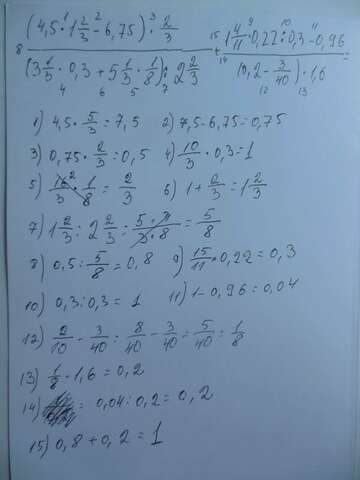 (4,5 · 1 2/3 − 6,75) · 2/3 + 1 4/11 · 0,22 : 0,3 − 0,96
(3 1/3 · 0,3 + 5 1/3 · 1/8) : 2 2/3 (0,2 − 3/40) · 1,6 =
1) 4,5 · 5/3 = 7,5 2) 7,5 − 6,75 = 0,75
3) 0,75 · 2/3 = 0,5 4) 10/3 · 0,3 = 1
5) 16/3 ² · 1/8 = 2/3 6) 1 + 2/3 = 1 2/3
7) 1 2/3 : 2 2/3 = 5 · 3/3 · 8 = 5/8
8) 0,5 : 5/8 = 0,8 9) 15/11 · 0,22 = 0,3
10) 0,3 : 0,3 = 1 11) 1 − 0,96 = 0,04
12) 2/10 − 3/40 = 8/40 − 3/40 = 5/40 = 1/8
13) 1/8 · 1,6 = 0,2
14) = 0,04 : 0,2 = 0,2
15) 0,8 + 0,2 = 1